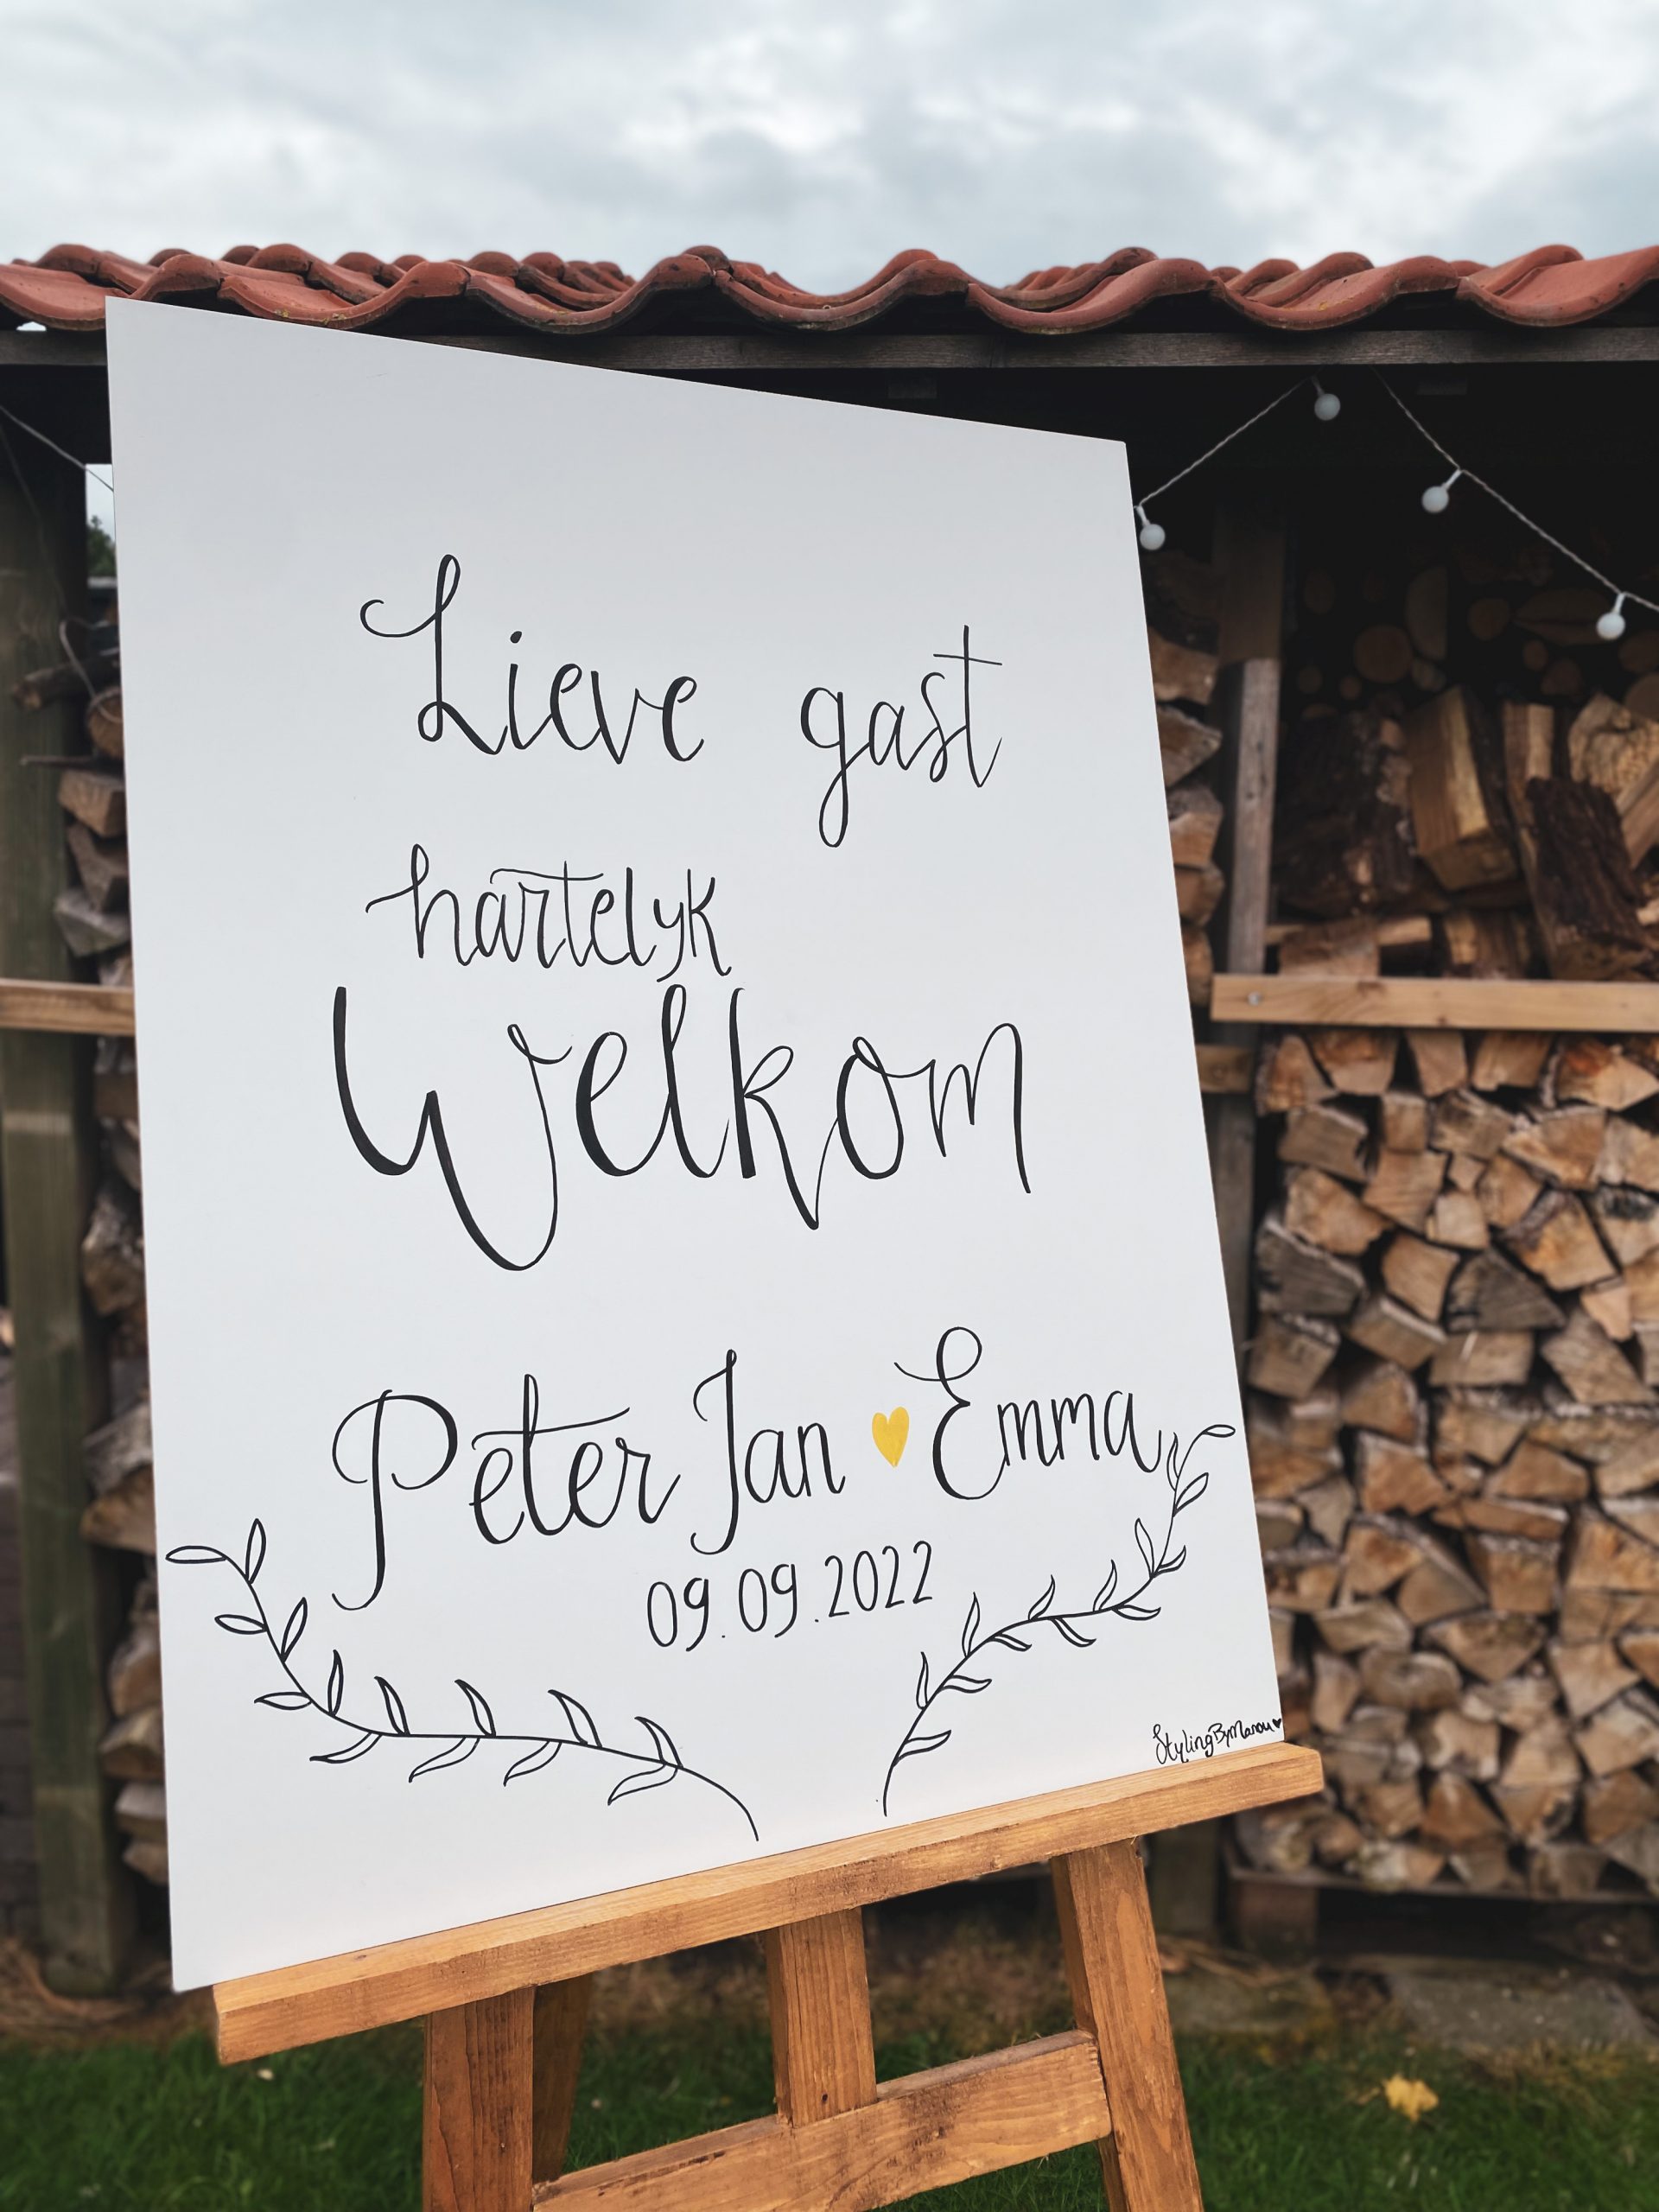 Lieve gast
hartelyk
Welkom
Peter Jan Emma
09.09.2022
StylingByManou